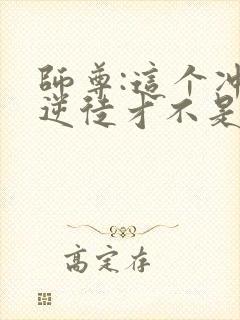 師尊:這个冲
逆徒才不是
高定存